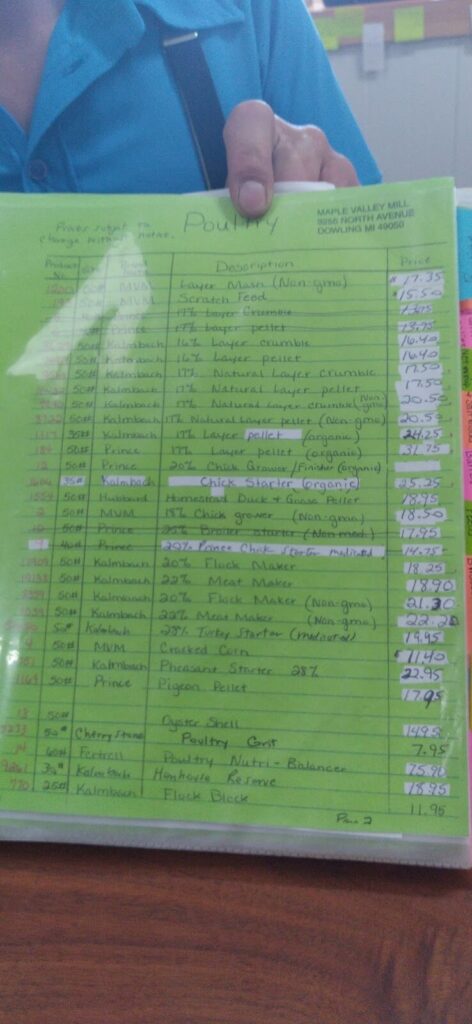 Prices subject to
change without notice.
Poultry
MAPLE VALLEY MILL
NORTH AVENUE
DOWLING MI 49050
Product No. Description Price
1200 50# MVM Layer Mash (Non-gmo) $17.35
50# MVM Scratch Feed $15.50
Prince 17% Layer Crumble
Prince 17% Layer pellet 13.95
50# Kalmbach 16% Layer crumble 16.40
50# Kalmbach 16% Layer pellet 16.40
50# Kalmbach 17% Natural Layer crumble 17.50
50# Kalmbach 17% Natural Layer pellet 17.50
50# Kalmbach 17% Natural Layer crumble (Non gmo) 20.50
50# Kalmbach 17% Natural Layer pellet (Non-gmo) 20.50
35# Kalmbach 17% Layer pellet (organic) 24.25
50# Prince 17% Layer pellet (organic) 31.75
12 50# Prince 20% Chick Grower/Finisher (organic)
35# Kalmbach Chick Starter (organic) 25.25
1554 50# Hubbard Homestead Duck & Goose Pellet 18.95
2 50# MVM 18% Chick grower (Non-gmo) 18.50
10 50# Prince Broiler starter (Non med.) 17.95
Prince 20% Prince Chick starter medicated 14.75
50# Kalmbach 20% Flock Maker 18.25
50# Kalmbach 22% Meat Maker 18.90
50# Kalmbach 20% Flock Maker (Non-gmo) 21.30
50# Kalmbach 22% Meat Maker (Non-gmo) 22.20
50# Kalmbach 28% Turkey Starter (medicated) 19.95
50# MVM Cracked Corn $11.40
50# Kalmbach Pheasant Starter 28% 22.95
50# Prince Pigeon Pellet 17.95
13 50# Oyster Shell 14.95
50# CherryStone Poultry Grit 7.95
60# Fertrell Poultry Nutri-Balancer 75.90
Kalmbach Henhouse Reserve 18.95
770 25# Kalmbach Flock Block 11.95